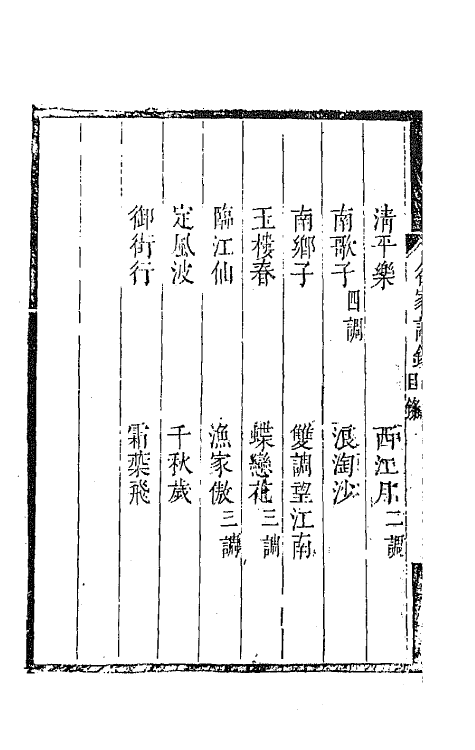 清平樂　西江月二調
南歌子四調　浪淘沙
南鄉子　雙調望江南
玉樓春　蝶戀花三調
臨江仙　漁家傲三調
定風波　千秋歲
御街行　霜葉飛
目錄